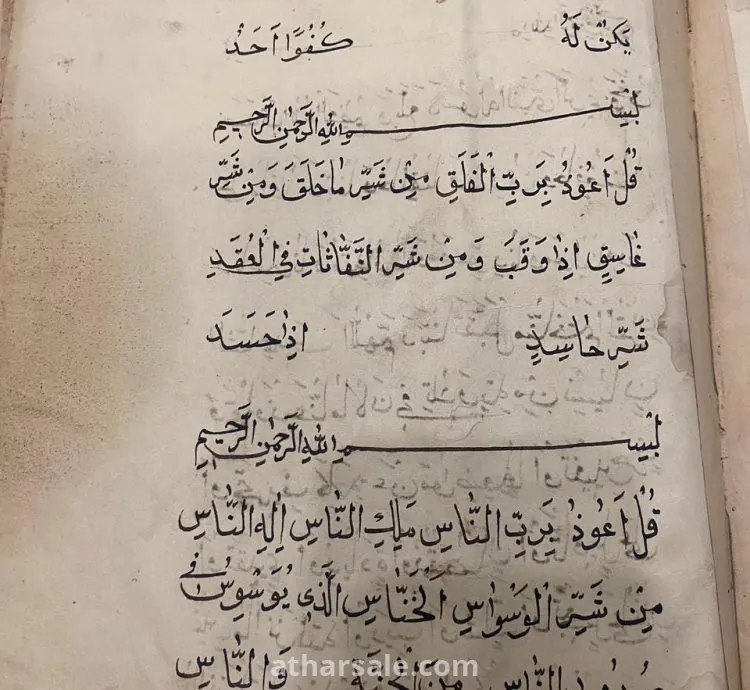 يَكُنْ لَهُ كُفُوًا اَحَدٌ
بِسْمِ اللهِ الرَّحْمٰنِ الرَّحِيمِ
قُلْ اَعُوذُ بِرَبِّ الْفَلَقِ مِنْ شَرِّ مَا خَلَقَ وَمِنْ شَرِّ
غَاسِقٍ اِذَا وَقَبَ وَمِنْ شَرِّ النَّفَّاثَاتِ فِي الْعُقَدِ
شَرِّ حَاسِدٍ اِذَا حَسَدَ
بِسْمِ اللهِ الرَّحْمٰنِ الرَّحِيمِ
قُلْ اَعُوذُ بِرَبِّ النَّاسِ مَلِكِ النَّاسِ اِلٰهِ النَّاسِ
مِنْ شَرِّ الْوَسْوَاسِ الْخَنَّاسِ الَّذِي يُوَسْوِسُ فِي
صُدُورِ النَّاسِ مِنَ الْجِنَّةِ وَالنَّاسِ
atharsale.com